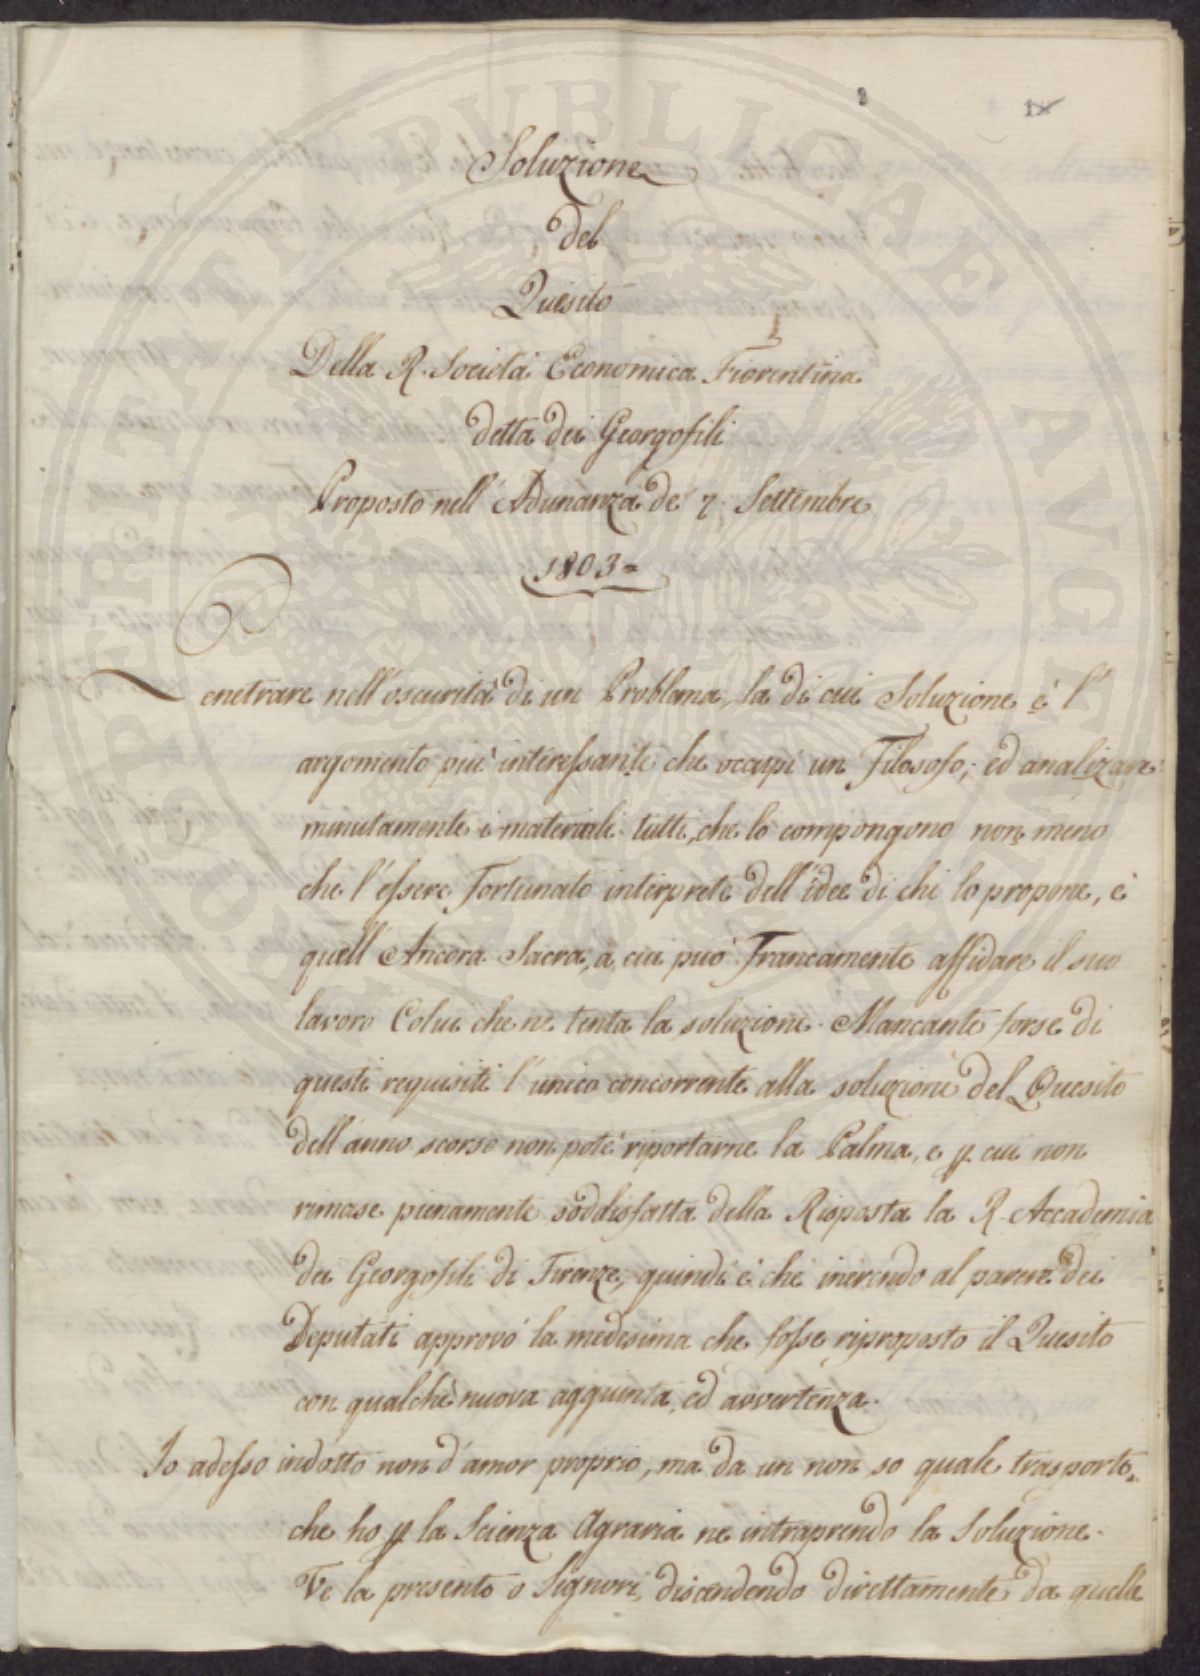 1
Soluzione
del
Quesito
Della R. Società Economica Fiorentina
detta dei Georgofili
Proposto nell'Adunanza de' 7. Settembre
1803=
Penetrare nell'oscurità di un Problema, la di cui Soluzione è l'
argomento più interessante che occupi un Filosofo; ed analizare
minutamente i materiali tutti, che lo compongono non meno
che l'essere Fortunato interprete dell'idee di chi lo propone, è
quell'Ancora Sacra, a cui può Francamente affidare il suo
lavoro Colui che ne tenta la soluzione. Mancante forse di
questi requisiti l'unico concorrente alla soluzione del Quesito
dell'anno scorso non potè riportarne la Palma, e p cui non
rimase pienamente soddisfatta della Risposta la R. Accademia
dei Georgofili di Firenze, quindi è che inerendo al parere dei
Deputati approvò la medesima che fosse riproposto il Quesito
con qualche nuova aggiunta, ed avvertenza.
Io adesso indotto non d'amor proprio, ma da un non so quale trasporto,
che ho p la Scienza Agraria ne intraprendo la Soluzione.
Ve la presento o Signori, discendendo direttamente da quelle
PROSPERITATI PUBLICAE AUGENDAE